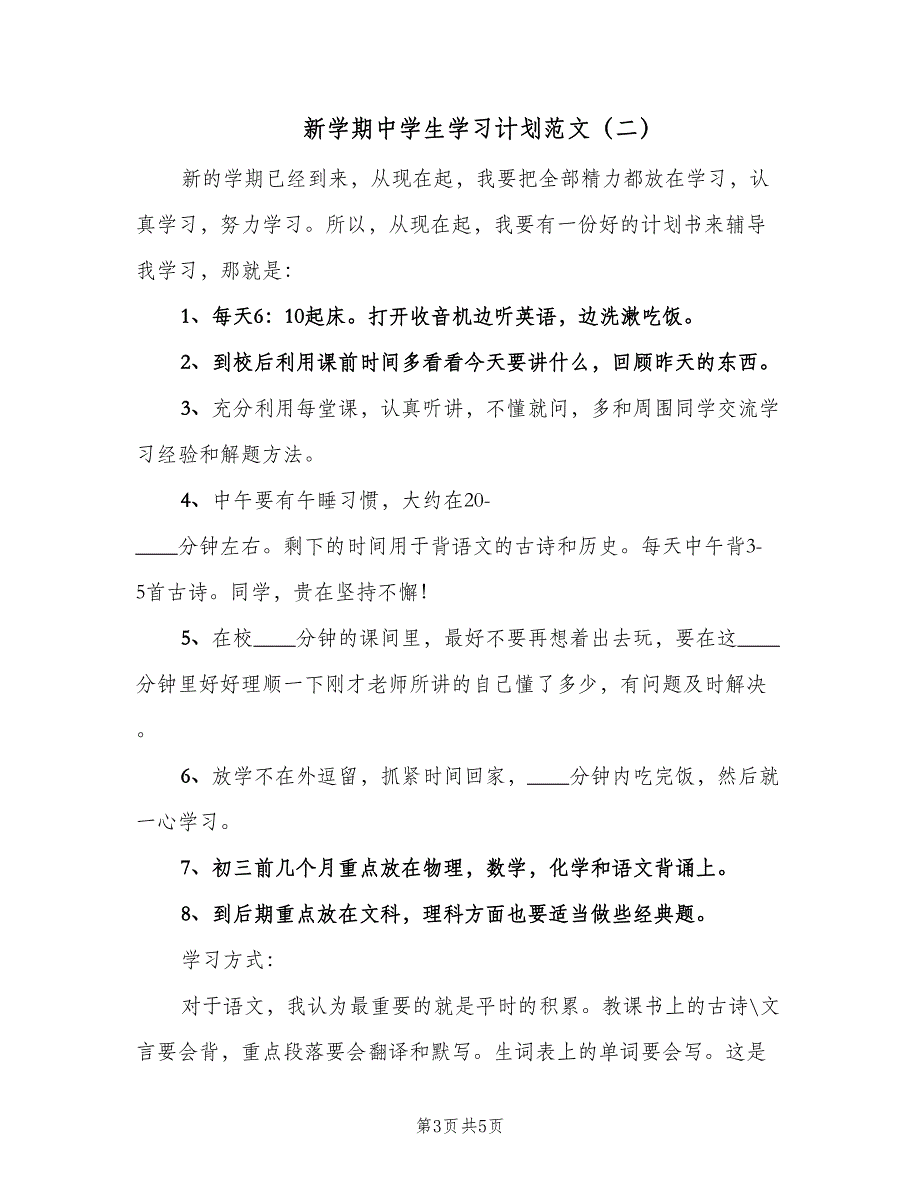 新学期中学生学习计划范文（二）
新的学期已经到来，从现在起，我要把全部精力都放在学习，认
真学习，努力学习。所以，从现在起，我要有一份好的计划书来辅导
我学习，那就是：
1、每天6：10起床。打开收音机边听英语，边洗漱吃饭。
2、到校后利用课前时间多看看今天要讲什么，回顾昨天的东西。
3、充分利用每堂课，认真听讲，不懂就问，多和周围同学交流学
习经验和解题方法。
4、中午要有午睡习惯，大约在20-
____分钟左右。剩下的时间用于背语文的古诗和历史。每天中午背3-
5首古诗。同学，贵在坚持不懈！
5、在校____分钟的课间里，最好不要再想着出去玩，要在这____
分钟里好好理顺一下刚才老师所讲的自己懂了多少，有问题及时解决
。
6、放学不在外逗留，抓紧时间回家，____分钟内吃完饭，然后就
一心学习。
7、初三前几个月重点放在物理，数学，化学和语文背诵上。
8、到后期重点放在文科，理科方面也要适当做些经典题。
学习方式：
对于语文，我认为最重要的就是平时的积累。教课书上的古诗\文
言要会背，重点段落要会翻译和默写。生词表上的单词要会写。这是
第3页共5页